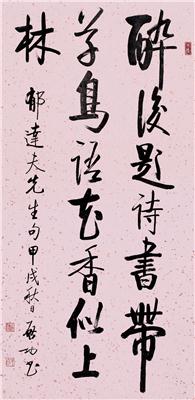 醉後題詩書帶
草鳥語花香似上
林
郁達夫先生句甲戌秋日啟功書